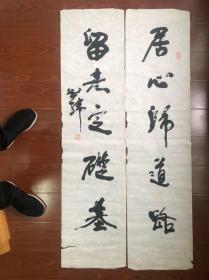 居心歸道路
留志定礎基